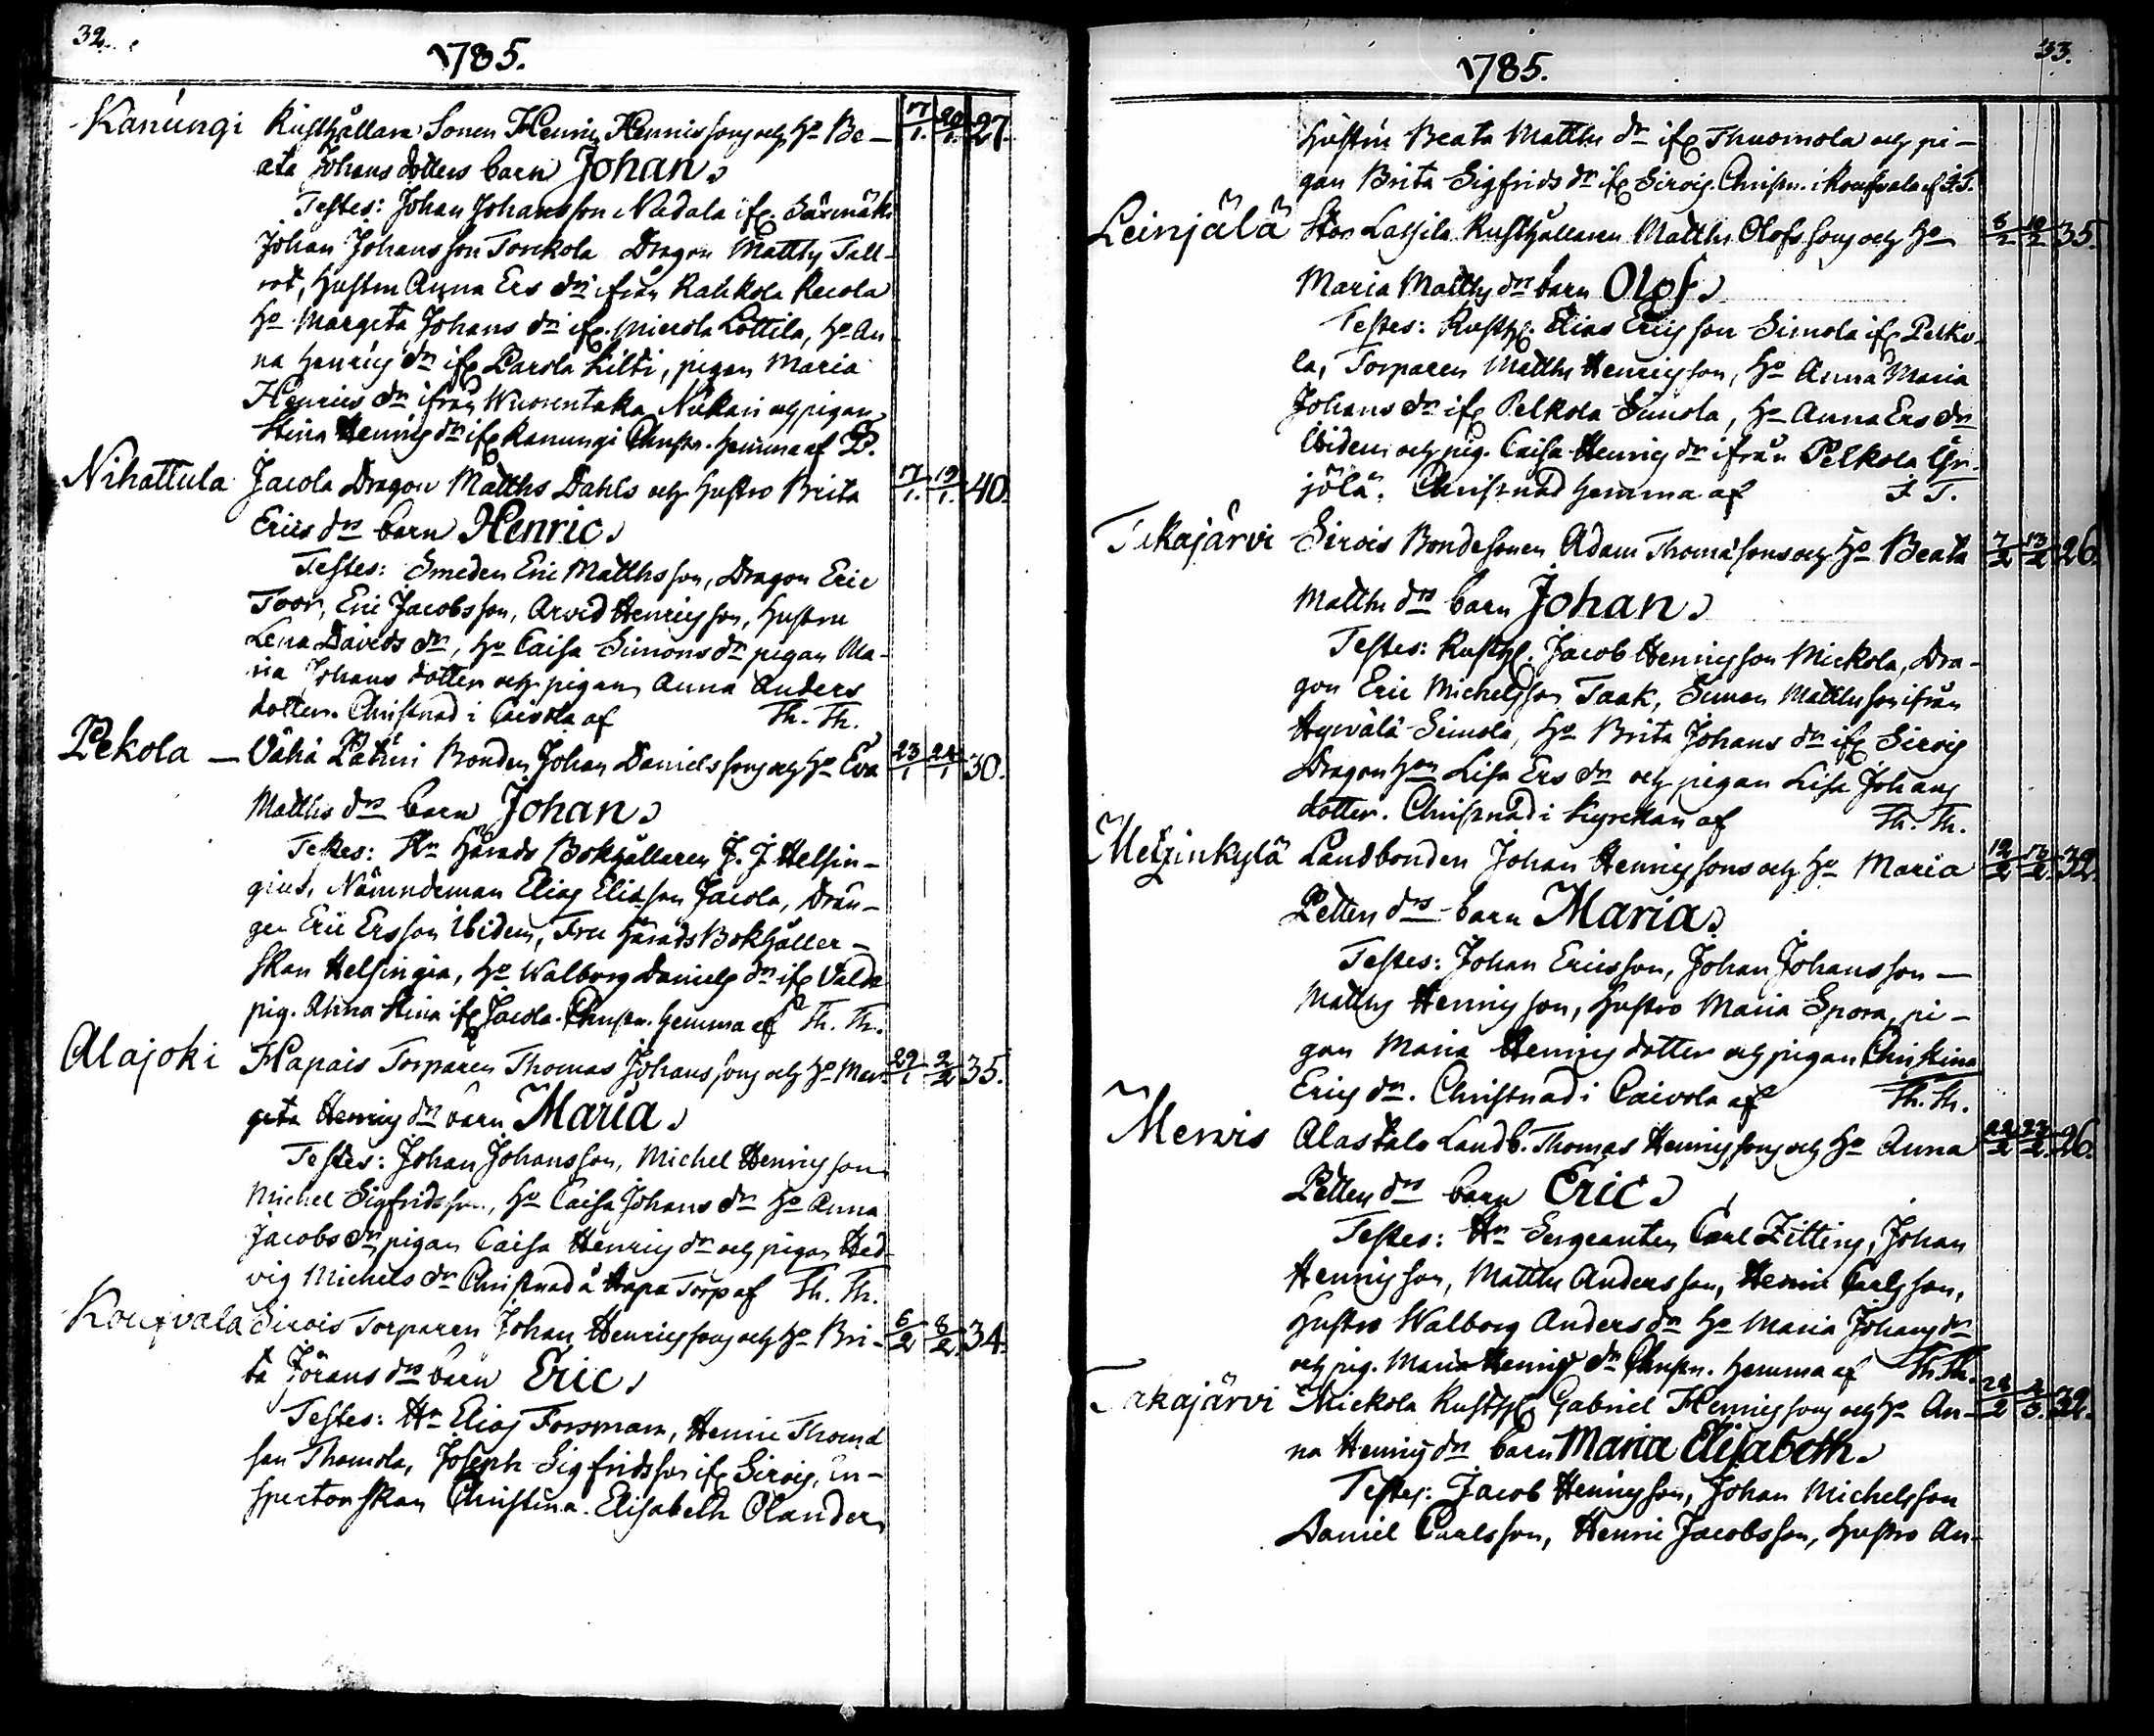 32.
1785.
Kanungi Rusthållare Sonen Henric Henrics son och Ho Be- 17/1. 20/1. 27.
ata Johans dotters barn Johan.
Testes: Johan Johansson Nadala ifr. Särmäki
Johan Johansson Torckola Dragon Matths Tall-
rot, Hustru Anna Ers dr ifrån Rahkola Recola
Ho Margeta Johans dr ifr. Miecola Lottila, Ho An-
na Henrics dr ifr Parola Kilti, pigan Maria
Henrics dr ifrån Wuorentaka Nikari och pigan
Stina Henrics dr ifr Kanungi Christn. hemma af B.
Nihattula Jacola Dragon Matths Dahls och Hustro Brita 17/1. 19/1. 40.
Erics drs barn Henric.
Testes: Smeden Eric Matthsson, Dragon Eric
Toor, Eric Jacobsson, Arvid Henricsson, Hustru
Lena Davids dr, Ho Caisa Simons dr pigan Ma-
ria Johans dotter och pigan Anna Anders
dotter. Christnad i Caivola af Th. Th.
Pekola — Vähä Pätari Bonden Johan Daniels sons och Ho Eva 23/1 24/1 30.
Matths drs barn Johan.
Testes: Hr Härads Bokhållaren J. J. Helsin-
gius, Nämndeman Elias Eliasson Jacola, Drän-
gen Eric Ersson Ibidem, Fru HäradsBokhåller-
skan Helsingia, Ho Walborg Daniels dr ifr
pig. Anna Stina ifr Jacola. Christn. hemma af Th. Th.
Alajoki Hapais Torparen Thomas Johans sons och Ho Mar- 29/1 2/2 35.
geta Henrics drs barn Maria.
Testes: Johan Johansson, Michel Henricsson
Michel Sigfridsson, Ho Caisa Johans dr Ho Anna
Jacobs dr, pigan Caisa Henrics dr och pigan Hed-
vig Michels dr Christnad å Hapa Torp af Th. Th.
Kouxvala Sirois Torparen Johan Henricssons och Ho Bri- 6/2 8/2 34.
ta Jörans drs barn Eric.
Testes: Hr Elias Forsman, Henric Thomä
son Thomola, Joseph Sigfridsson ifr Sirois, in-
spectorskan Christina Elisabeth Olander
33.
1785.
Hustru Beata Matths dr ifr Thuomola och pi-
gan Brita Sigfrids dr ifr Sirois. Christn. i Kouxvala af F. T.
Leinjälä Stor Lassila Rusthållaren Matths Olofs sons och Ho 8/2 10/2 35.
Maria Matths drs barn Olof.
Testes: Rusth. Elias Ericsson Simola ifr Pelko-
la, Torparen Matths Henricsson, Ho Anna Maria
Johans dr ifr Pelkola Simola, Ho Anna Ers dr
Ibidem och pig. Caisa Henrics dr ifrån Pelkola Yr-
jölä. Christnad hemma af F. T.
Takajärvi Sirois Bondesonen Adam Thomäsons och Ho Beata 7/2 13/2 26.
Matths drs barn Johan.
Testes: Rusth. Jacob Henricsson Mickola, Dra-
gon Eric Michelsson Taak, Simon Matthsson ifrån
Hyrvälä Simola, Ho Brita Johans dr ifr Sirois
Dragon Hon Lisa Ers dr och pigan Lisa Johans
dotter. Christnad i kyrckan af Th. Th.
Metzinkylä Landbonden Johan Henricssons och Ho Maria 12/2 13/2. 32.
Petters drs barn Maria.
Testes: Johan Ericsson, Johan Johansson —
Matths Henricsson, Hustro Maria Spora, pi-
gan Maria Henrics dotter och pigan Christina
Erics dr. Christnad i Caivola af Th. Th.
Mervis Alastalo Landb. Thomas Henricssons och Ho Anna 22/2 23/2. 26.
Petters drs barn Eric.
Testes: Hr Sergeanten Carl Zitting, Johan
Henricsson, Matths Andersson, Henric Carlsson,
Hustro Walborg Anders dr Ho Maria Johans dr
och pig. Maria Henrics dr Christn. hemma af Th. Th.
Takajärvi Mickola Rusth. Gabriel Henricssons och Ho An- 28/2 2/3. 32.
na Henrics drs barn Maria Elisabeth.
Testes: Jacob Henricsson, Johan Michelsson
Daniel Carlsson, Henric Jacobsson, Hustro An-